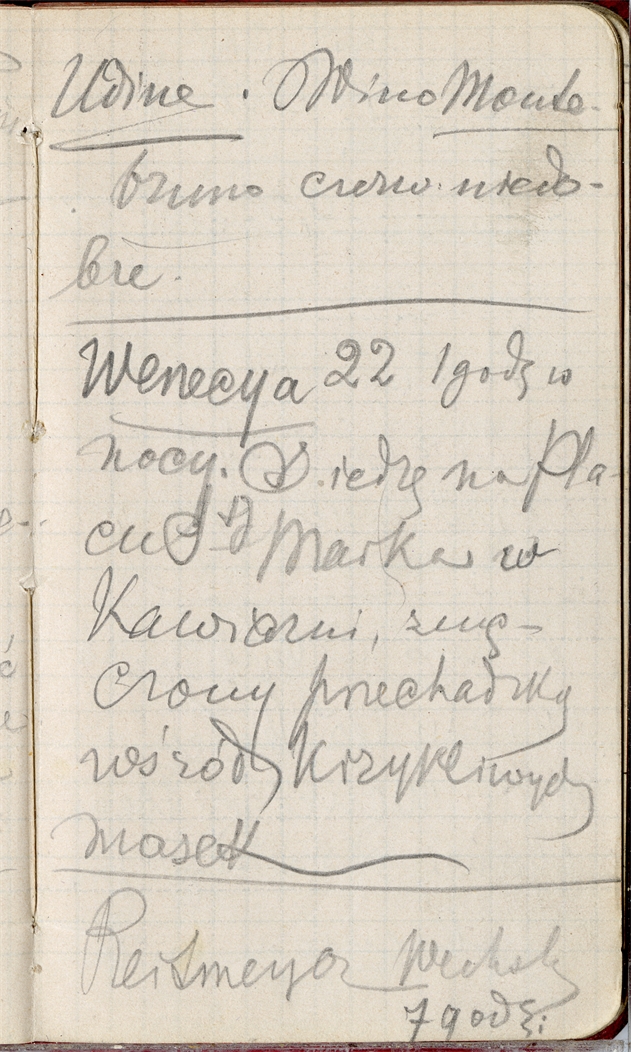 Udine. Wino Monte-
bruno czerw. niedo-
bre.
Wenecya 22 1 godz w
nocy. Siedzę na Pla-
cu S-go Marka w
Kawiarni, zmę-
czony przechadzką
wśród krzykliwych
masek
Reitmeyer
7 godz.